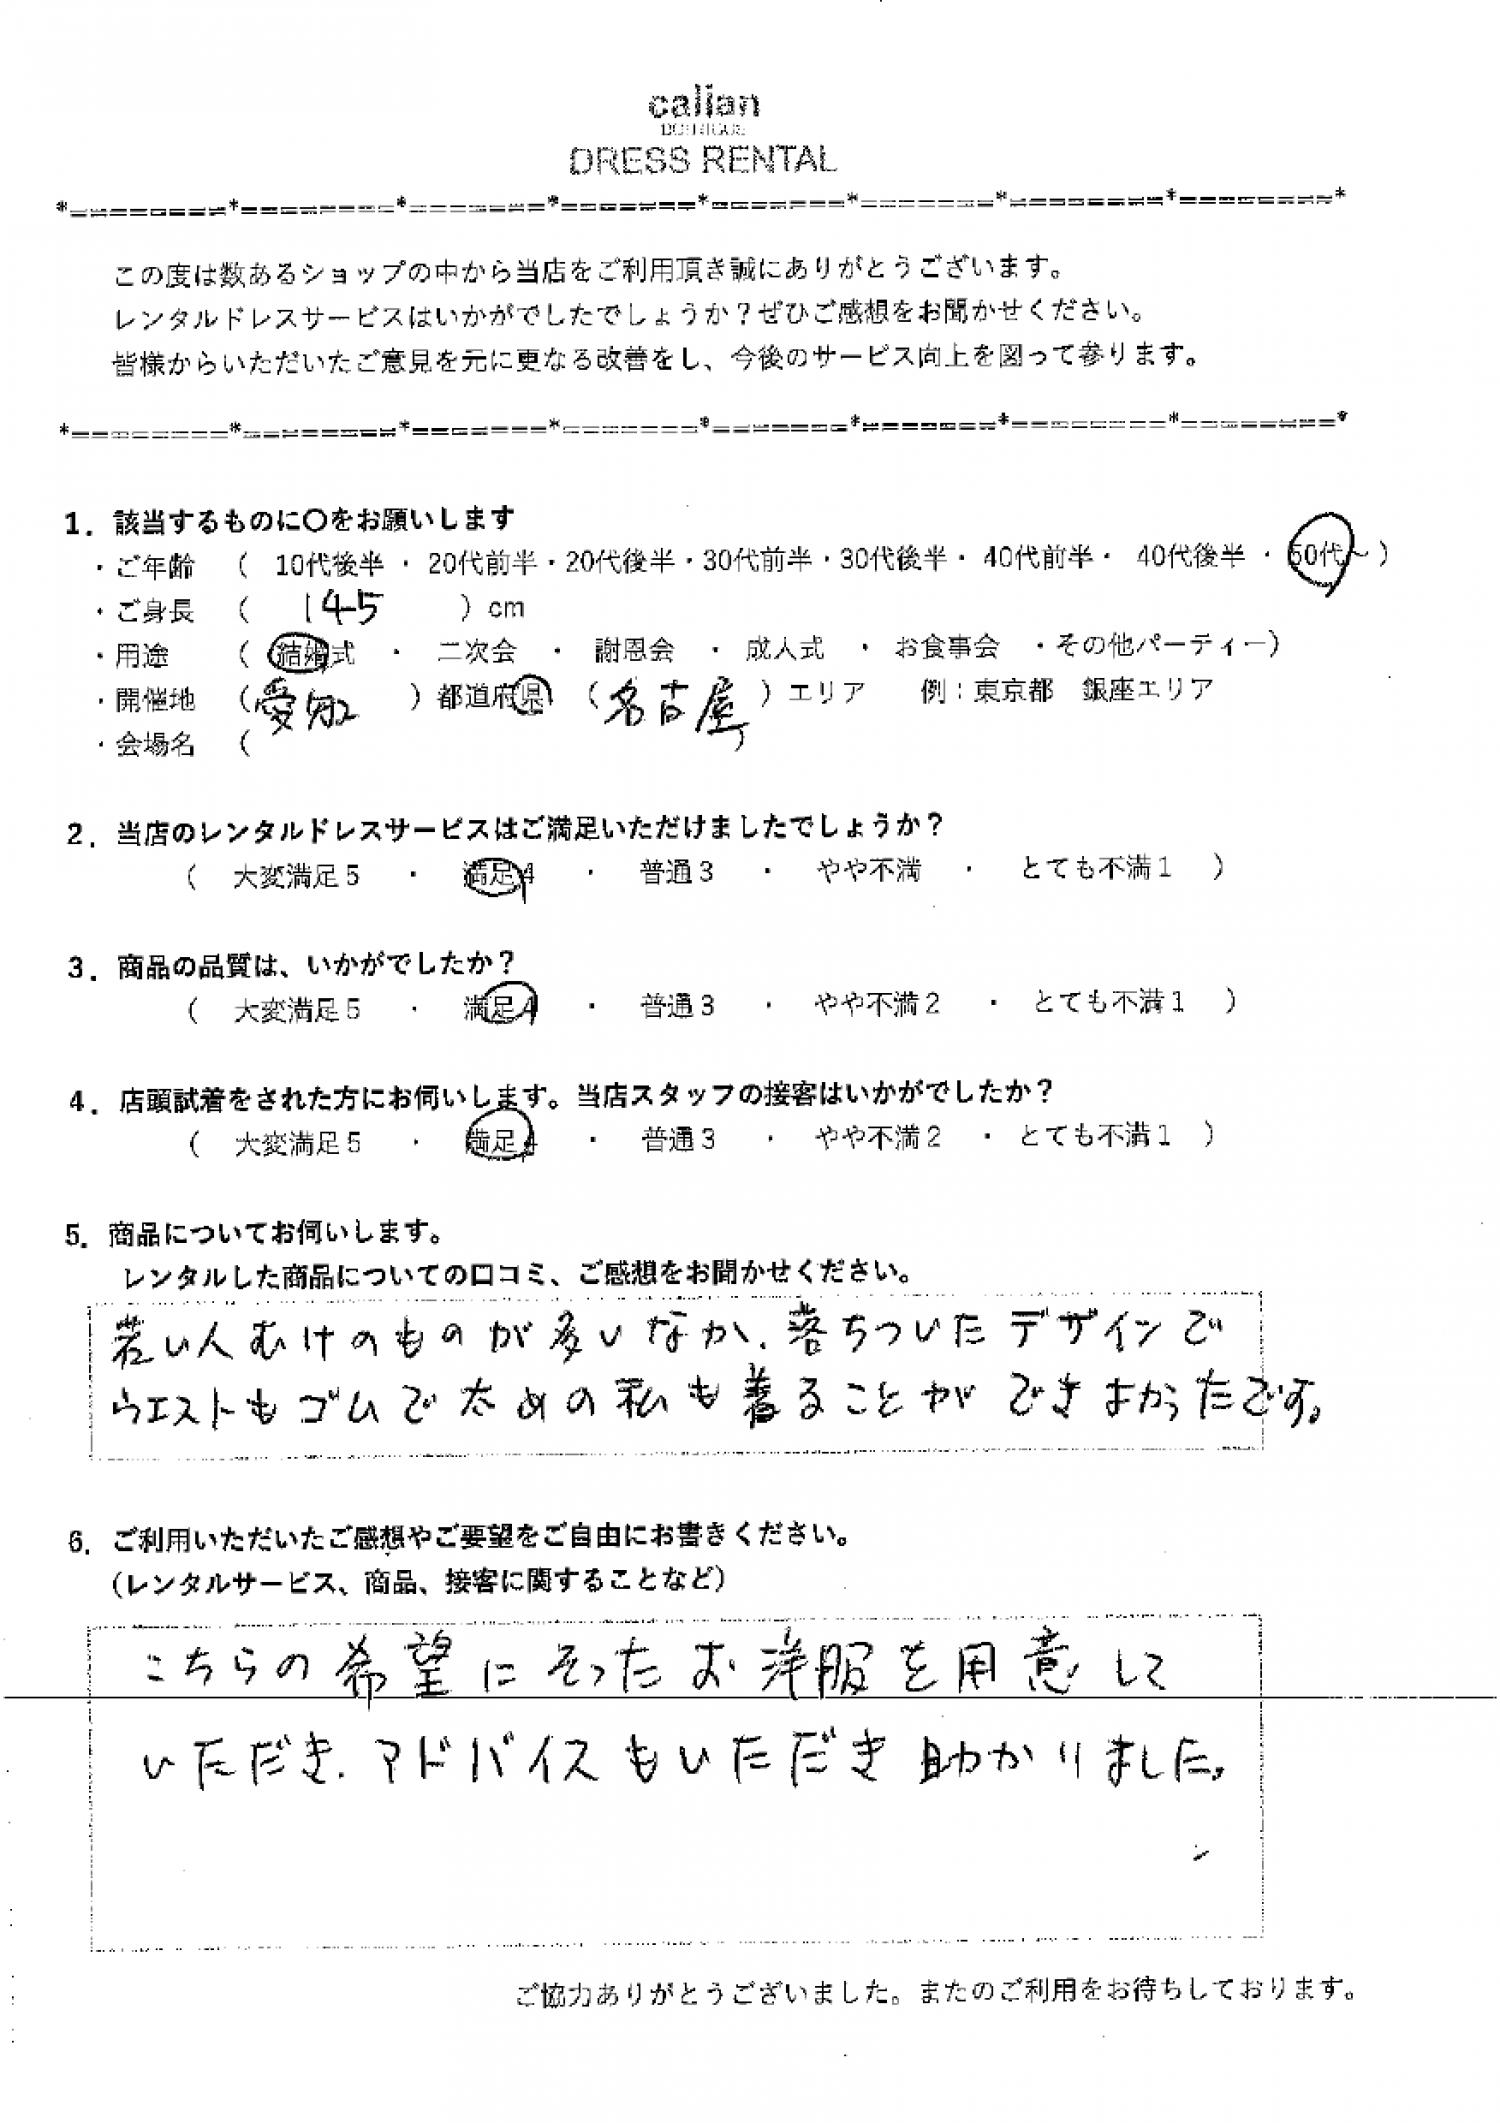 calian
DRESS RENTAL
*========*========*=======*=======*=======*=======*========*========*
この度は数あるショップの中から当店をご利用頂き誠にありがとうございます。
レンタルドレスサービスはいかがでしたでしょうか？ぜひご感想をお聞かせください。
皆様からいただいたご意見を元に更なる改善をし、今後のサービス向上を図って参ります。
*========*========*=======*=======*=======*=======*========*========*
1．該当するものに〇をお願いします
・ご年齢　（　10代後半　・　20代前半・20代後半・30代前半・30代後半・　40代前半・　40代後半　・　50代～　）
・ご身長　（　145　）cm
・用途　（　結婚式　・　二次会　・　謝恩会　・　成人式　・　お食事会　・その他パーティー）
・開催地　（愛知　）都道府県　（名古屋　）エリア　例：東京都　銀座エリア
・会場名　（　）
2．当店のレンタルドレスサービスはご満足いただけましたでしょうか？
（　大変満足５　・　満足4　・　普通３　・　やや不満　・　とても不満１　）
3．商品の品質は、いかがでしたか？
（　大変満足５　・　満足4　・　普通３　・　やや不満２　・　とても不満１　）
4．店頭試着をされた方にお伺いします。当店スタッフの接客はいかがでしたか？
（　大変満足５　・　満足4　・　普通３　・　やや不満２　・　とても不満１　）
5．商品についてお伺いします。
レンタルした商品についての口コミ、ご感想をお聞かせください。
若い人むけのものが多いなか、落ちついたデザインで
ウエストもゴムで太めの私も着ることができよかったです。
6．ご利用いただいたご感想やご要望をご自由にお書きください。
（レンタルサービス、商品、接客に関することなど）
こちらの希望にそったお洋服を用意して
いただき、アドバイスもいただき助かりました。
ご協力ありがとうございました。またのご利用をお待ちしております。